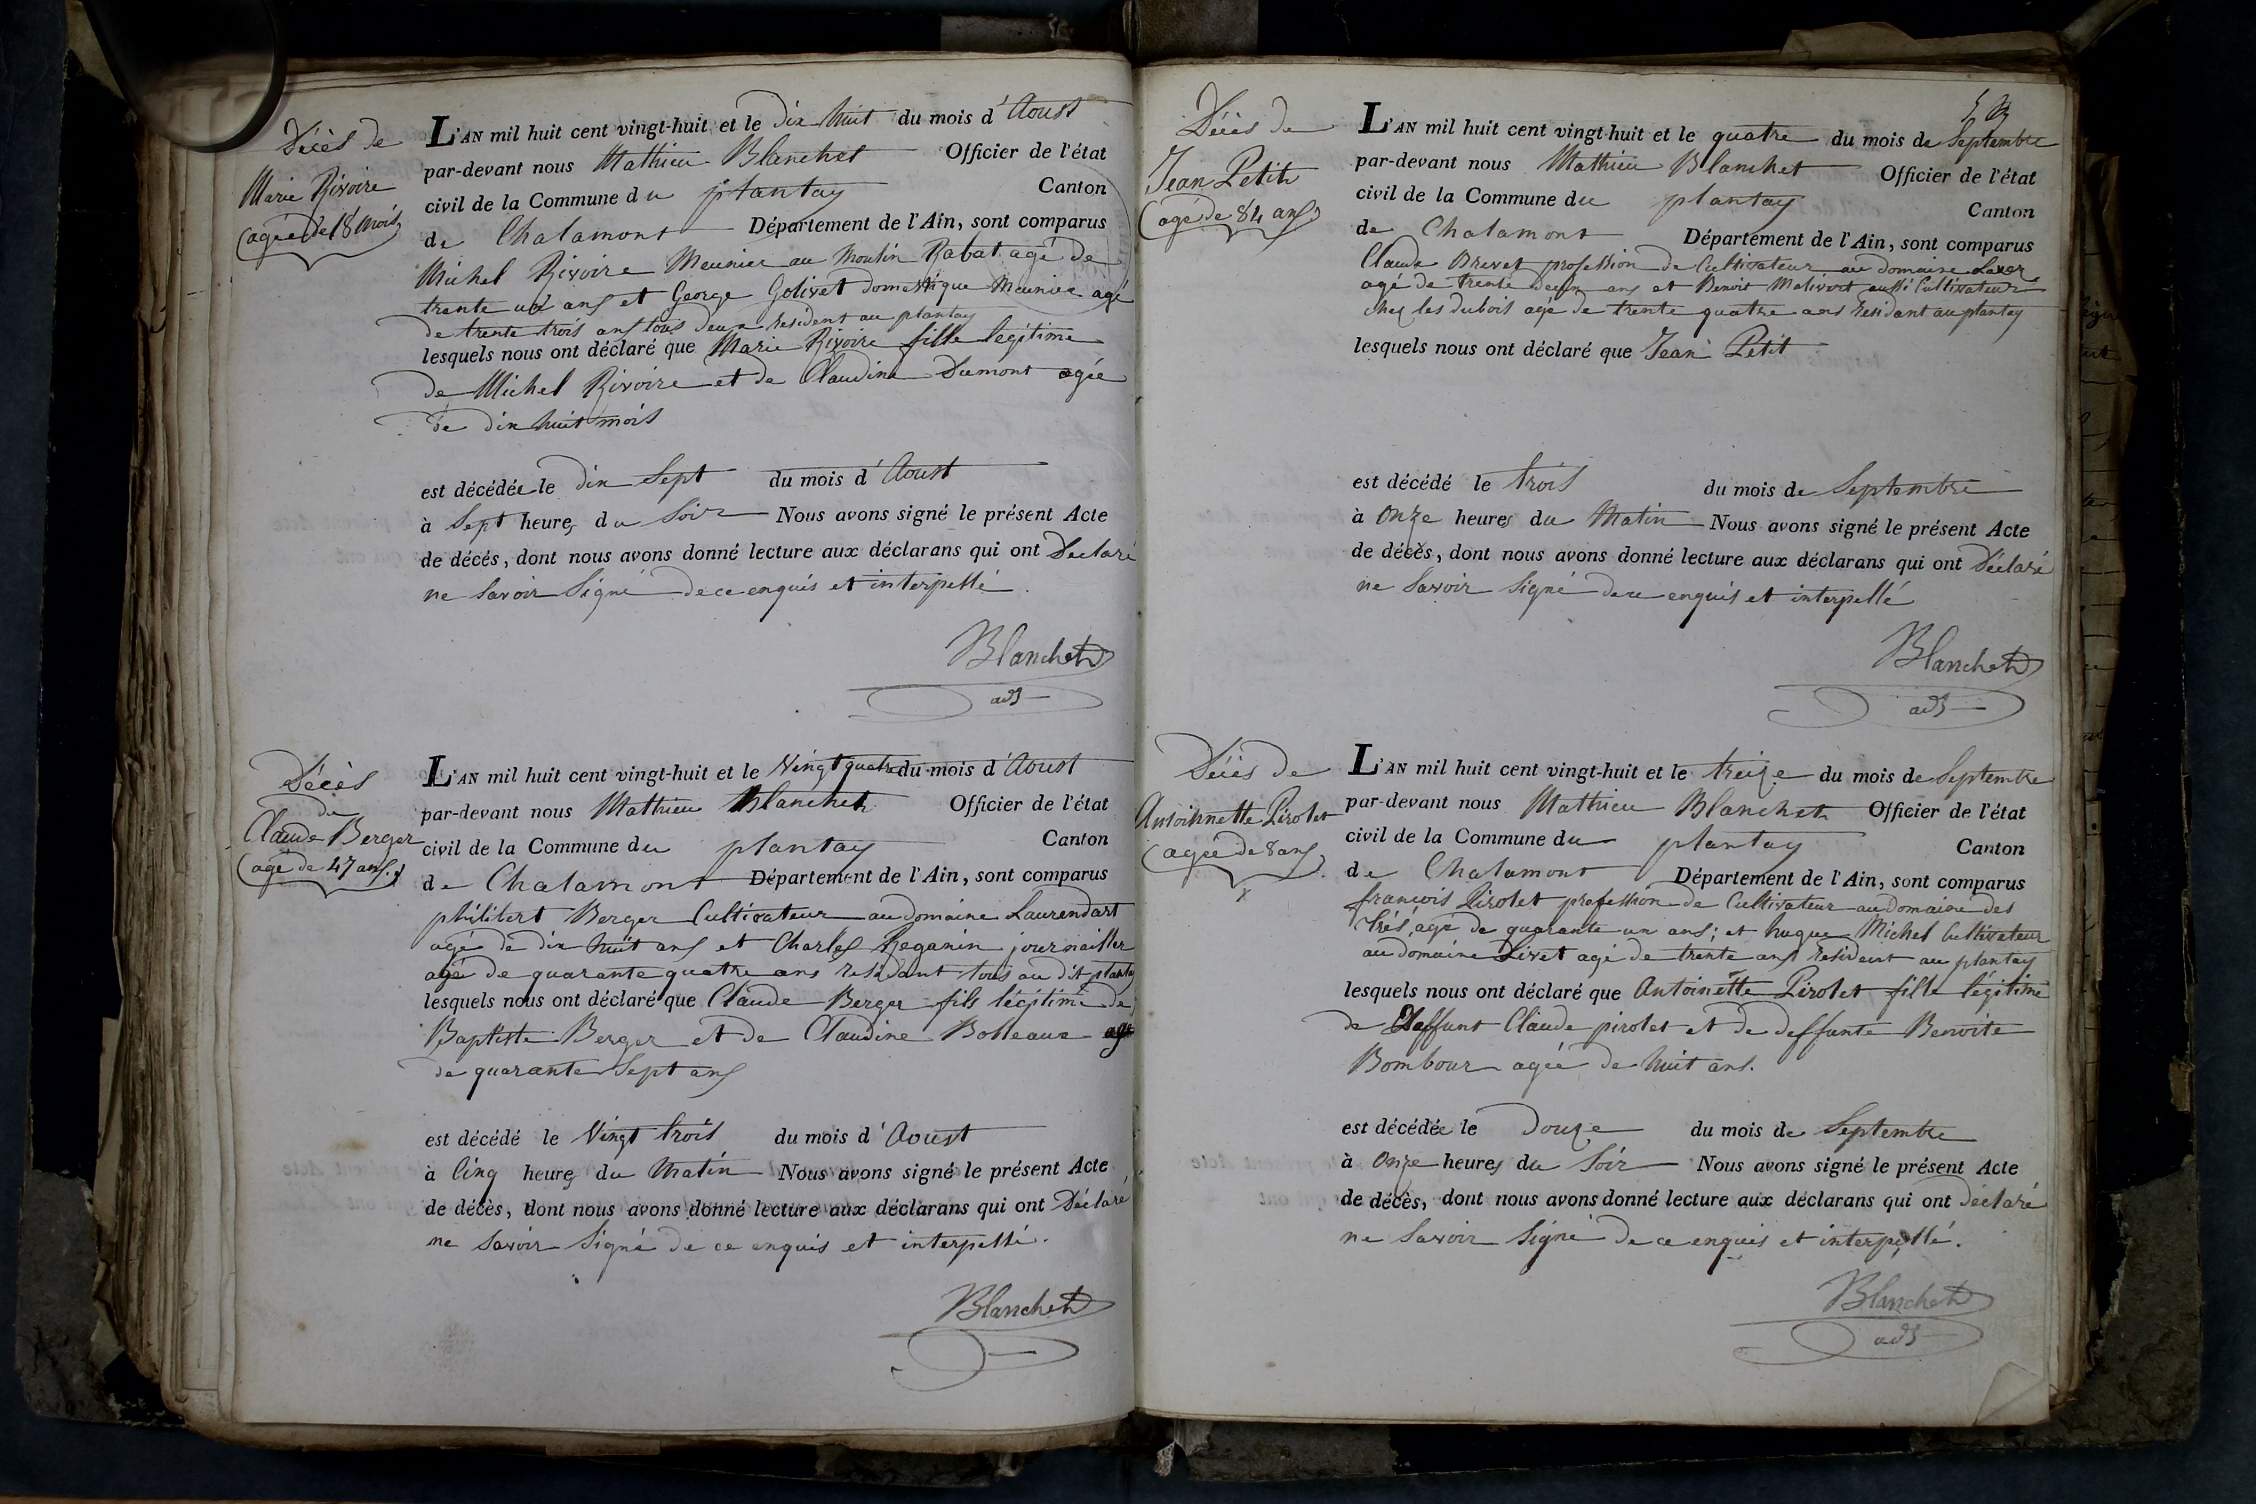 Décès de
Marie Rivoire
(agée de 18 mois)
L'AN mil huit cent vingt-huit et le dix huit du mois d'Aoust
par-devant nous Mathieu Blanchet Officier de l'état
civil de la Commune du plantay Canton
de Chalamont Département de l'Ain, sont comparus
Michel Rivoire Meunier au Moulin Rabat agé de
trente un ans et George Golivet domestique Meunier agé
de trente trois ans tous deux résident au plantay
lesquels nous ont déclaré que Marie Rivoire fille légitime
de Michel Rivoire et de Claudine Dumont agée
de dix huit mois
est décédée le dix Sept du mois d'Aoust
à Sept heures du Soir Nous avons signé le présent Acte
de décés, dont nous avons donné lecture aux déclarans qui ont Declaré
ne Savoir Signé de ce enquis et interpellé.
Blanchet
adj
Décès
de
Claude Berger
(agé de 47 ans.)
L'AN mil huit cent vingt-huit et le Vingt quatre du mois d'Aoust
par-devant nous Mathieu Blanchet Officier de l'état
civil de la Commune du plantay Canton
de Chalamont Département de l'Ain, sont comparus
philibert Berger Cultivateur au domaine Laurendart
agé de dix huit ans et Charles Reganin journailler
agé de quarante quatre ans residant tous au dit plantay
lesquels nous ont déclaré que Claude Berger fils légitime de
Baptiste Berger et de Claudine Bolleaux agé
de quarante Sept ans
est décédé le Vingt trois du mois d'Aoust
à Cinq heures du Matin Nous avons signé le présent Acte
de décès, dont nous avons donné lecture aux déclarans qui ont Déclaré
ne Savoir Signé de ce enquis et interpellé.
Blanchet
Décès de
Jean Petit
(agé de 84 ans)
L'AN mil huit cent vingt-huit et le quatre du mois de Septembre
par-devant nous Mathieu Blanchet Officier de l'état
civil de la Commune du plantay Canton
de Chalamont Département de l'Ain, sont comparus
Claude Brevet profession de Cultivateur au domaine
agé de trente deux ans et Benoit Molivort aussi Cultivateur
chez les dubois agé de trente quatre ans residant au plantay
lesquels nous ont déclaré que Jean Petit
est décédé le trois du mois de Septembre
à onze heures du Matin Nous avons signé le présent Acte
de décès, dont nous avons donné lecture aux déclarans qui ont Déclaré
ne Savoir Signé de ce enquis et interpellé
Blanchet
adj
Décès de
Antoinnette Pirolet
(agée de 8 ans)
L'AN mil huit cent vingt-huit et le treize du mois de Septembre
par-devant nous Mathieu Blanchet Officier de l'état
civil de la Commune du plantay Canton
de Chalamont Département de l'Ain, sont comparus
françois Pirolet profession de Cultivateur au Domaine des
agé de quarante un ans; et hugue Michel Cultivateur
au domaine Livet agé de trente ans resident au plantay
lesquels nous ont déclaré que Antoinette Pirolet fille légitime
de deffunt Claude pirolet et de deffunte Benoite
Bombour agée de huit ans.
est décédée le Douze du mois de Septembre
à Onze heures du Soir Nous avons signé le présent Acte
de décès, dont nous avons donné lecture aux déclarans qui ont déclaré
ne Savoir Signé de ce enquis et interpellé.
Blanchet
adj